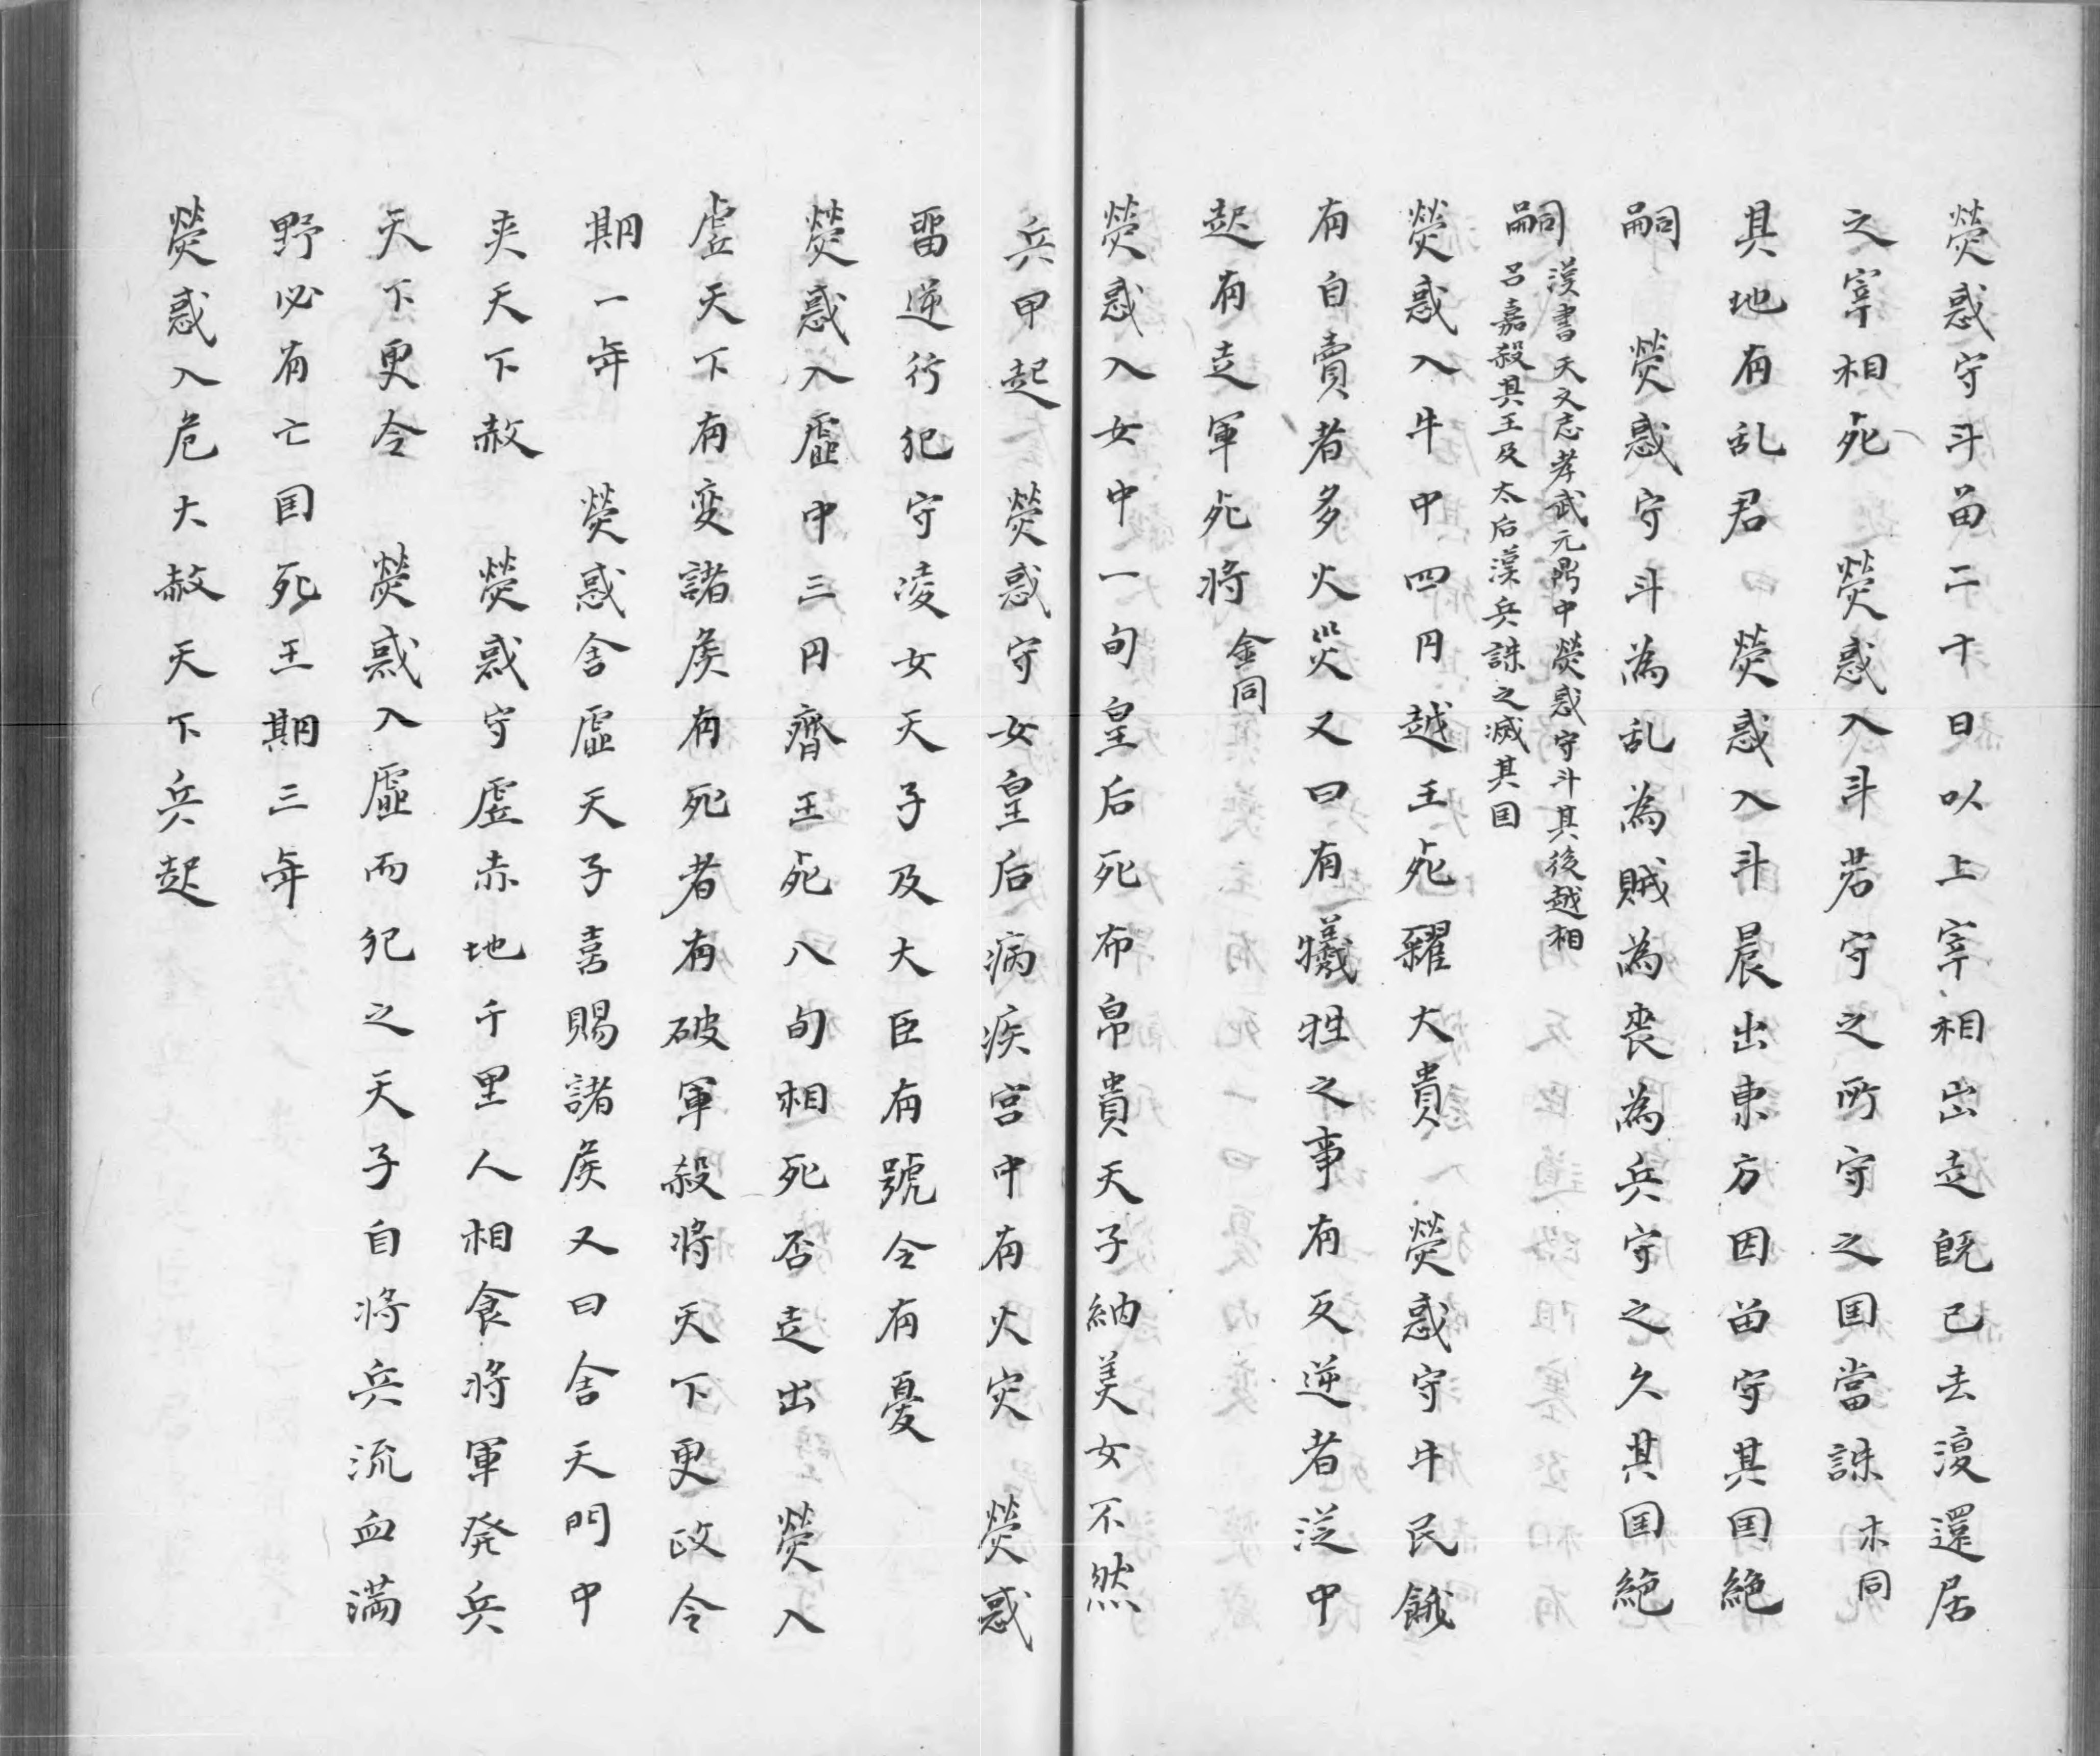 熒惑守斗畄二十日以上宰相出走既已去復還居
之宰相死　熒惑入斗若守之所守之国當誅木同
其地有乱君　熒惑入斗晨出東方因畄守其国絶
嗣　熒惑守斗為乱為賊為喪為兵守之久其国絶
嗣漢書天文志孝武元鼎中熒惑守斗其後越相
呂嘉殺其王及太后漢兵誅之滅其国
熒惑入牛中四月越王死糴大貴　熒惑守牛民餓
有自賣者多火災又曰有犠牲之事有反逆者従中
起有走軍死将金同
熒惑入女中一旬皇后死布帛貴天子納美女不然
兵甲起　熒惑守女皇后病疾宮中有火灾　熒惑
畱逆行犯守凌女天子及大臣有號令有憂
熒惑入虚中三月齊王死八旬相死否走出　熒入
虚天下有変諸侯有死者有破軍殺将天下更政令
期一年　熒惑舎虚天子喜賜諸侯又曰舎天門中
夾天下赦　熒惑守虚赤地千里人相食将軍発兵
天下更令　熒惑入虚而犯之天子自将兵流血満
野必有亡国死王期三年
熒惑入危大赦天下兵起